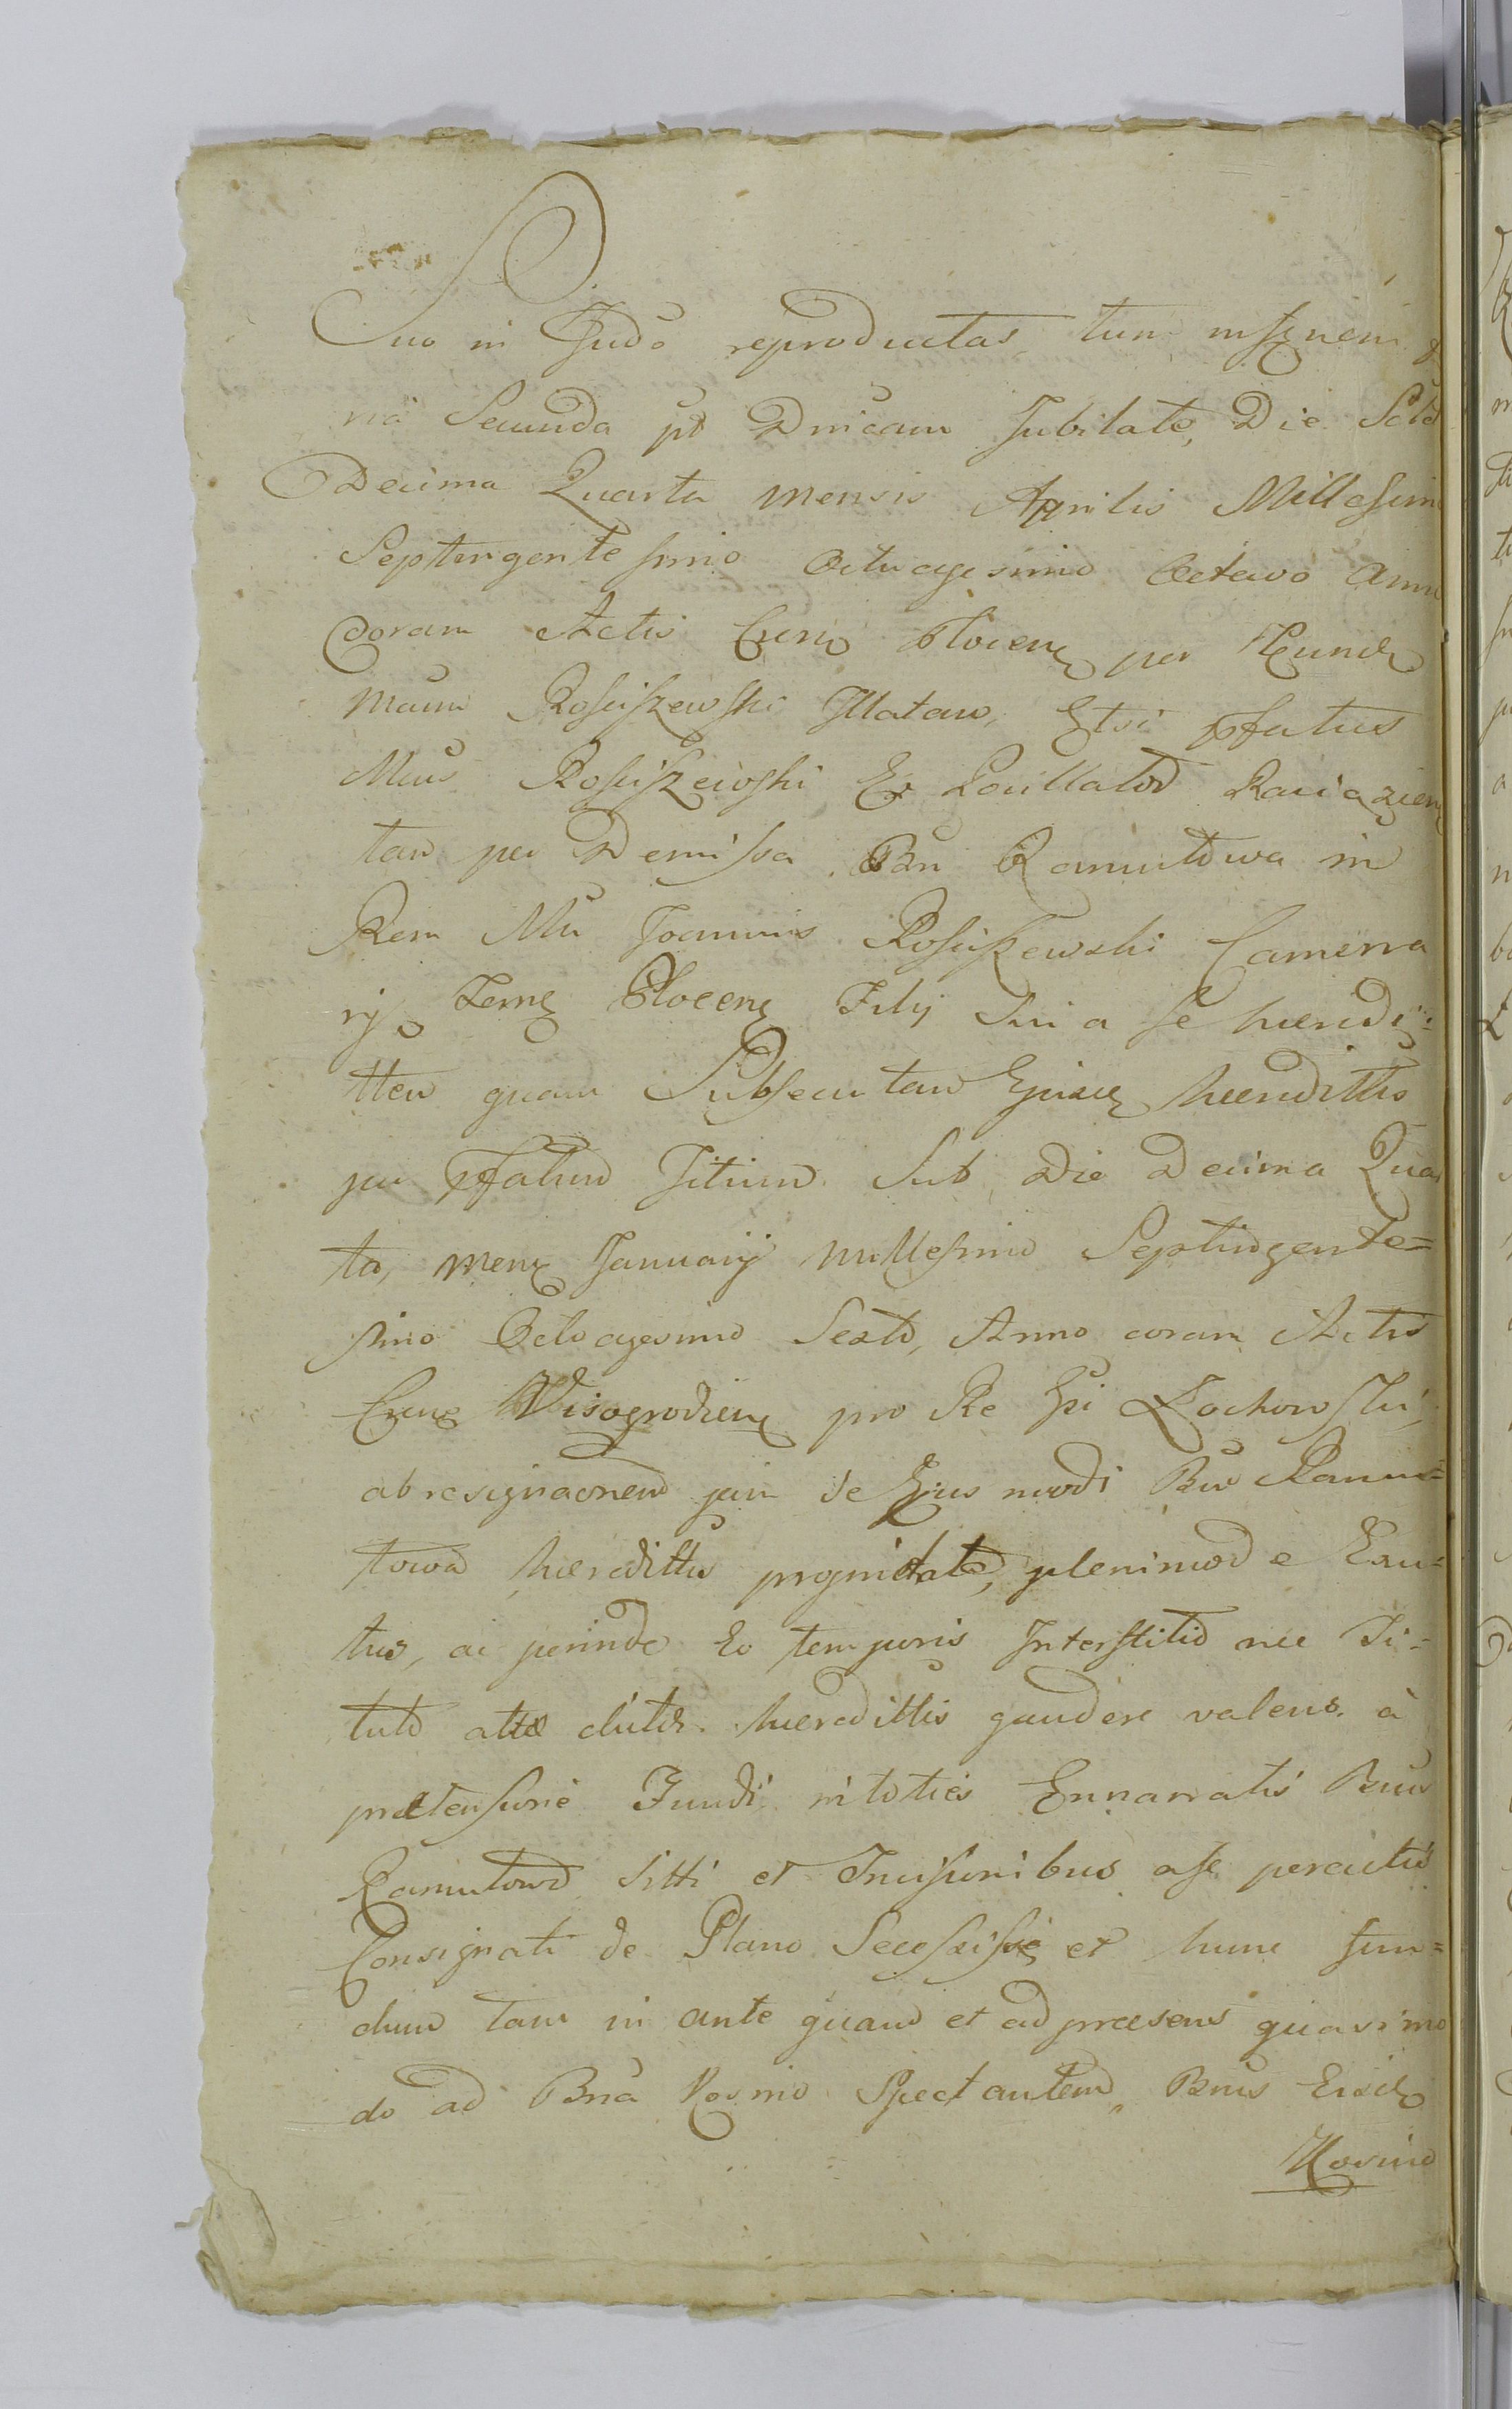 Suo in Judo reproductas, tum in
ria Secunda pt Dnicam Jubilate, Die
Decima Quarta mensis Aprilis Millesim
Septingentesimo Octuagesimo Octavo Ann
Coram Actis Crens Plocens per Eund
Mcum Rosciszewski Illatam, Etsi pfatus
Mcus Rosciszewski Ex Raciązens
tam per Demissa Bon Ramutowa in
Rem Mci Joannis Rosciszewski Camerra
rij Terrs Plocens Filij Sui a se haeredi:
ttem quam Subsecutam haeredittis
per pfatum Filium Sub Die Decima Quar
ta, mens Januarij Millesimo Septingente=
simo Octoagesimo Sexto, Anno coram Actis
Crens Wisogrodiens pro Re Łochowski,
ab resignaonem jam de Ejus modi Bnis Ramu=
towo haeredittis proprietate, plenimode Exu=
tus, ac perinde Eo temporis Interstitio nec Ti=
tulo haeredittis gaudere valens. à
praetensione Fundi in toties Ennarratis Bnis
Ramutowo Sitti et Incisionibus a se peractis
Consignati de Plano Secessisse et hunc fun=
dum tam in ante quam et ad praesens quasi mo
do ad Bna Kosmo Spectantem, Bnis
Kosmo